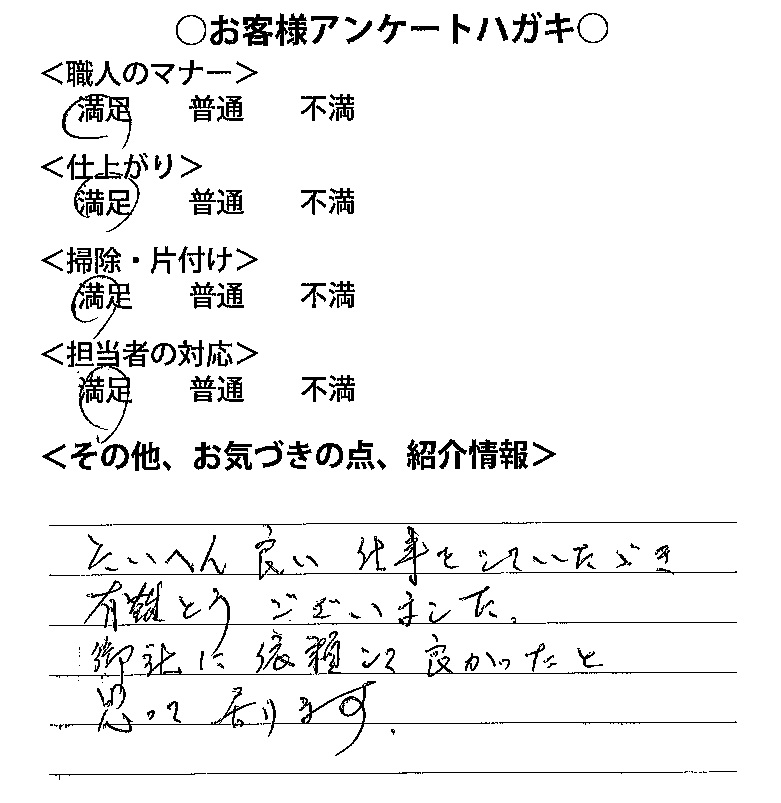 ○お客様アンケートハガキ○
＜職人のマナー＞
満足　普通　不満
＜仕上がり＞
満足　普通　不満
＜掃除・片付け＞
満足　普通　不満
＜担当者の対応＞
満足　普通　不満
＜その他、お気づきの点、紹介情報＞
たいへん良い仕事をしていただき
有難とうございました。
御社に依頼して良かったと
思って居ります.